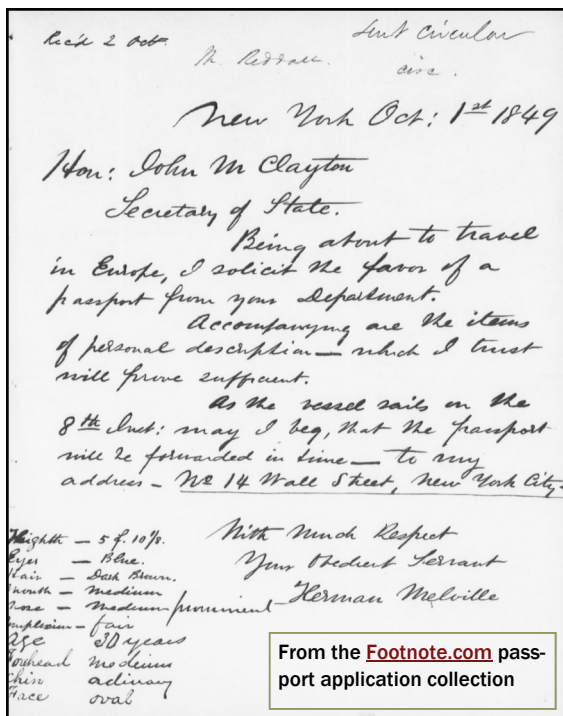 Rec'd 2 Oct.
Sent Circular
M. Reddall.
circ.
New York Oct: 1st 1849
Hon: John M Clayton
Secretary of State.
Being about to travel
in Europe, I solicit the favor of a
passport from your Department.
Accompanying are the items
of personal description — which I trust
will prove sufficient.
As the vessel sails on the
8th Inst: may I beg, that the passport
will be forwarded in time — to my
address — No 14 Wall Street, New York City.
With Much Respect
Your Obedient Servant
Herman Melville
Heighth — 5 f. 10 1/8.
Eyes — Blue.
Hair — Dark Brown.
mouth — medium
nose — medium/prominent
complexion — fair
age 30 years
Forehead medium
Chin ordinary
Face oval
From the Footnote.com pass-
port application collection